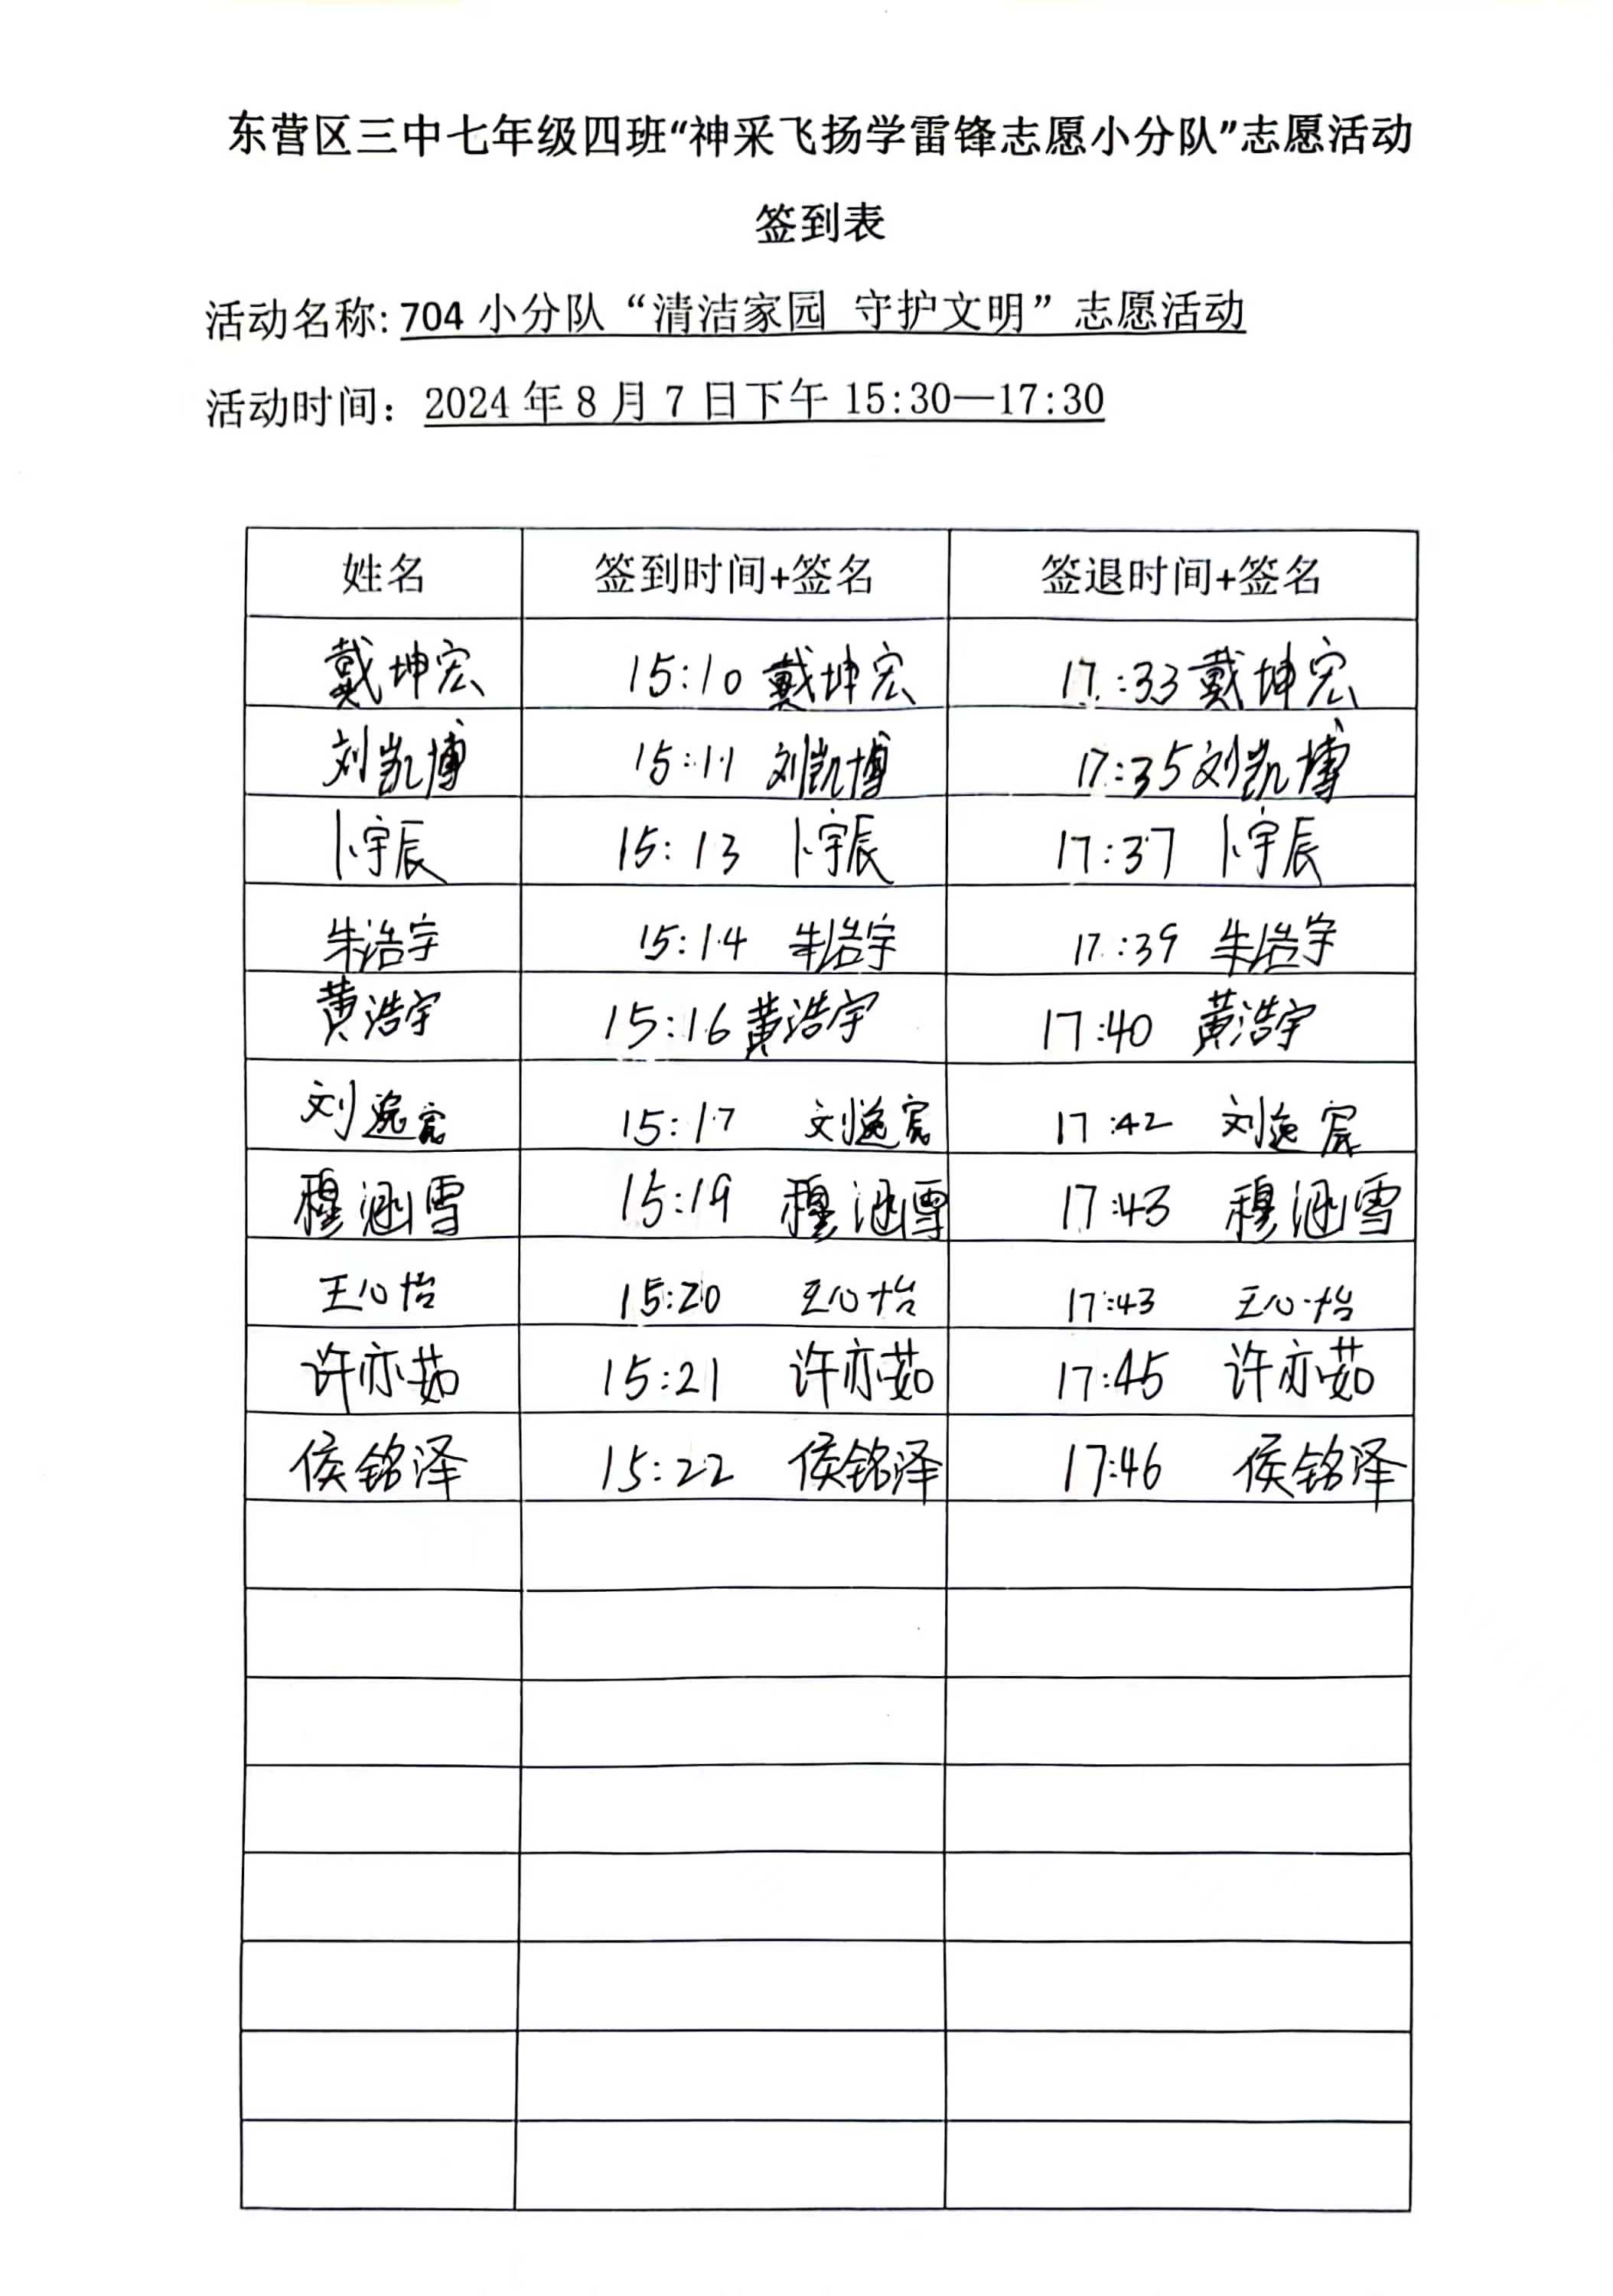 东营区三中七年级四班“神采飞扬学雷锋志愿小分队”志愿活动
签到表
活动名称: 704 小分队“清洁家园 守护文明”志愿活动
活动时间: 2024 年 8 月 7 日下午 15:30—17:30
姓名 签到时间+签名 签退时间+签名
戴坤宏 15:10 戴坤宏 17:33 戴坤宏
刘凯博 15:11 刘凯博 17:35 刘凯博
卜宇辰 15:13 卜宇辰 17:37 卜宇辰
朱浩宇 15:14 朱浩宇 17:39 朱浩宇
黄浩宇 15:16 黄浩宇 17:40 黄浩宇
刘逸宸 15:17 刘逸宸 17:42 刘逸宸
穆涵雪 15:19 穆涵雪 17:43 穆涵雪
王心怡 15:20 王心怡 17:43 王心怡
许亦茹 15:21 许亦茹 17:45 许亦茹
侯铭泽 15:22 侯铭泽 17:46 侯铭泽